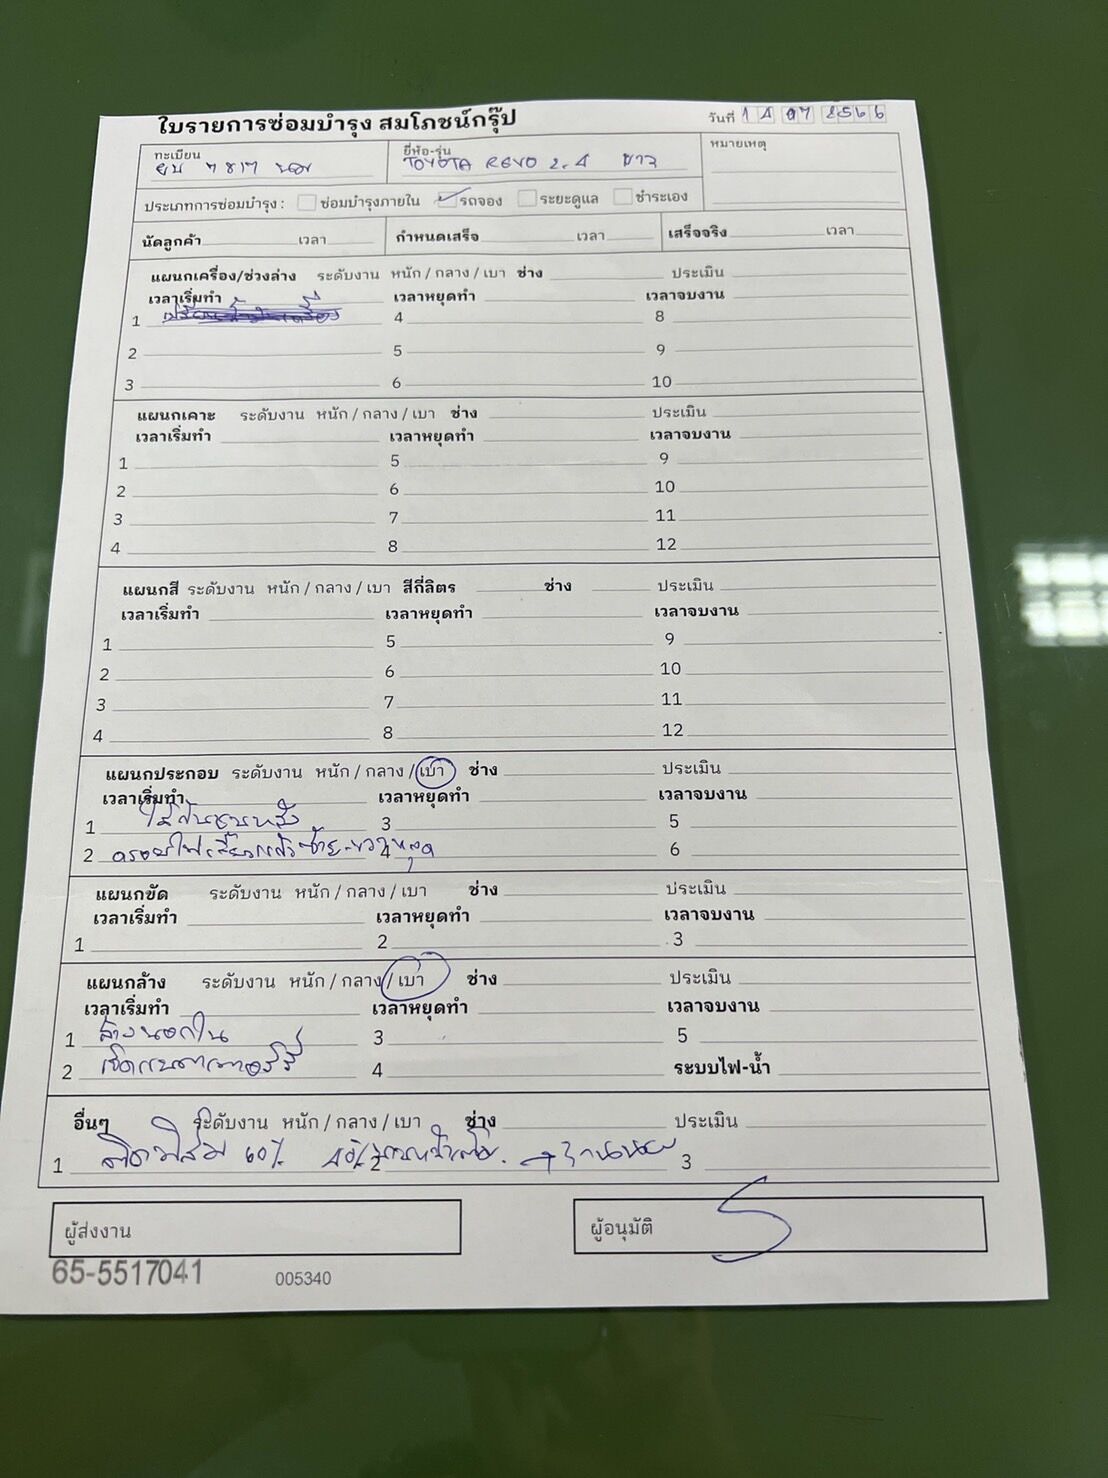 ใบรายการซ่อมบำรุง สมโภชน์กรุ๊ป
วันที่ 14 07 2566
ทะเบียน ยี่ห้อ-รุ่น หมายเหตุ
7817 TOYOTA REVO 2.4 ขาว
ประเภทการซ่อมบำรุง : ซ่อมบำรุงภายใน รถจอง ระยะดูแล ชำระเอง
นัดลูกค้า เวลา กำหนดเสร็จ เวลา เสร็จจริง เวลา
แผนกเครื่อง/ช่วงล่าง ระดับงาน หนัก / กลาง / เบา ช่าง ประเมิน
เวลาเริ่มทำ เวลาหยุดทำ เวลาจบงาน
1 4 8
2 5 9
3 6 10
แผนกเคาะ ระดับงาน หนัก / กลาง / เบา ช่าง ประเมิน
เวลาเริ่มทำ เวลาหยุดทำ เวลาจบงาน
1 5 9
2 6 10
3 7 11
4 8 12
แผนกสี ระดับงาน หนัก / กลาง / เบา สีกี่ลิตร ช่าง ประเมิน
เวลาเริ่มทำ เวลาหยุดทำ เวลาจบงาน
1 5 9
2 6 10
3 7 11
4 8 12
แผนกประกอบ ระดับงาน หนัก / กลาง / เบา ช่าง ประเมิน
เวลาเริ่มทำ เวลาหยุดทำ เวลาจบงาน
1 3 5
2 4 6
แผนกขัด ระดับงาน หนัก / กลาง / เบา ช่าง ประเมิน
เวลาเริ่มทำ เวลาหยุดทำ เวลาจบงาน
1 2 3
แผนกล้าง ระดับงาน หนัก / กลาง / เบา ช่าง ประเมิน
เวลาเริ่มทำ เวลาหยุดทำ เวลาจบงาน
1 ล้างนอกใน 3 5
2 4 ระบบไฟ-น้ำ
อื่นๆ ระดับงาน หนัก / กลาง / เบา ช่าง ประเมิน
1 60% 40% 2 3
ผู้ส่งงาน ผู้อนุมัติ
65-5517041 005340